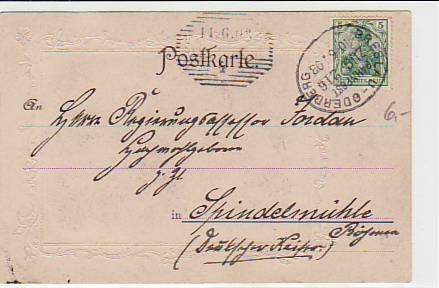 11.6.03
5
Postkarte.
ODERBERG
10.6.03
6,-
An
Herrn Regierungsassessor Jordan
Hochwohlgeboren
z. Zt.
in Spindelmühle
Böhmen
(Deutscher Kaiser)